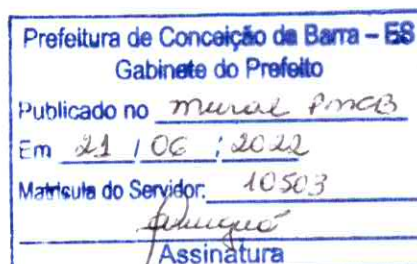 Prefeitura de Conceição da Barra – ES
Gabinete do Prefeito
Publicado no mural PMCB
Em 21 / 06 / 2022
Matrícula do Servidor: 10503
Assinatura